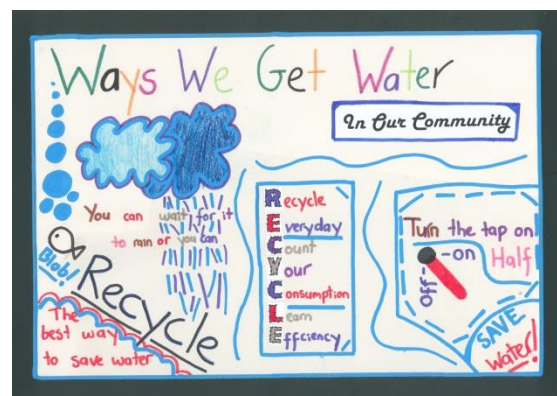 Ways We Get Water
In Our Community
You can wait for it
to rain or you can
Blob!
Recycle
The
best way
to save water
Recycle
Everyday
Count
Your
Consumption
Learn
Effciency
Turn the tap on
Half
off
on
SAVE
Water!